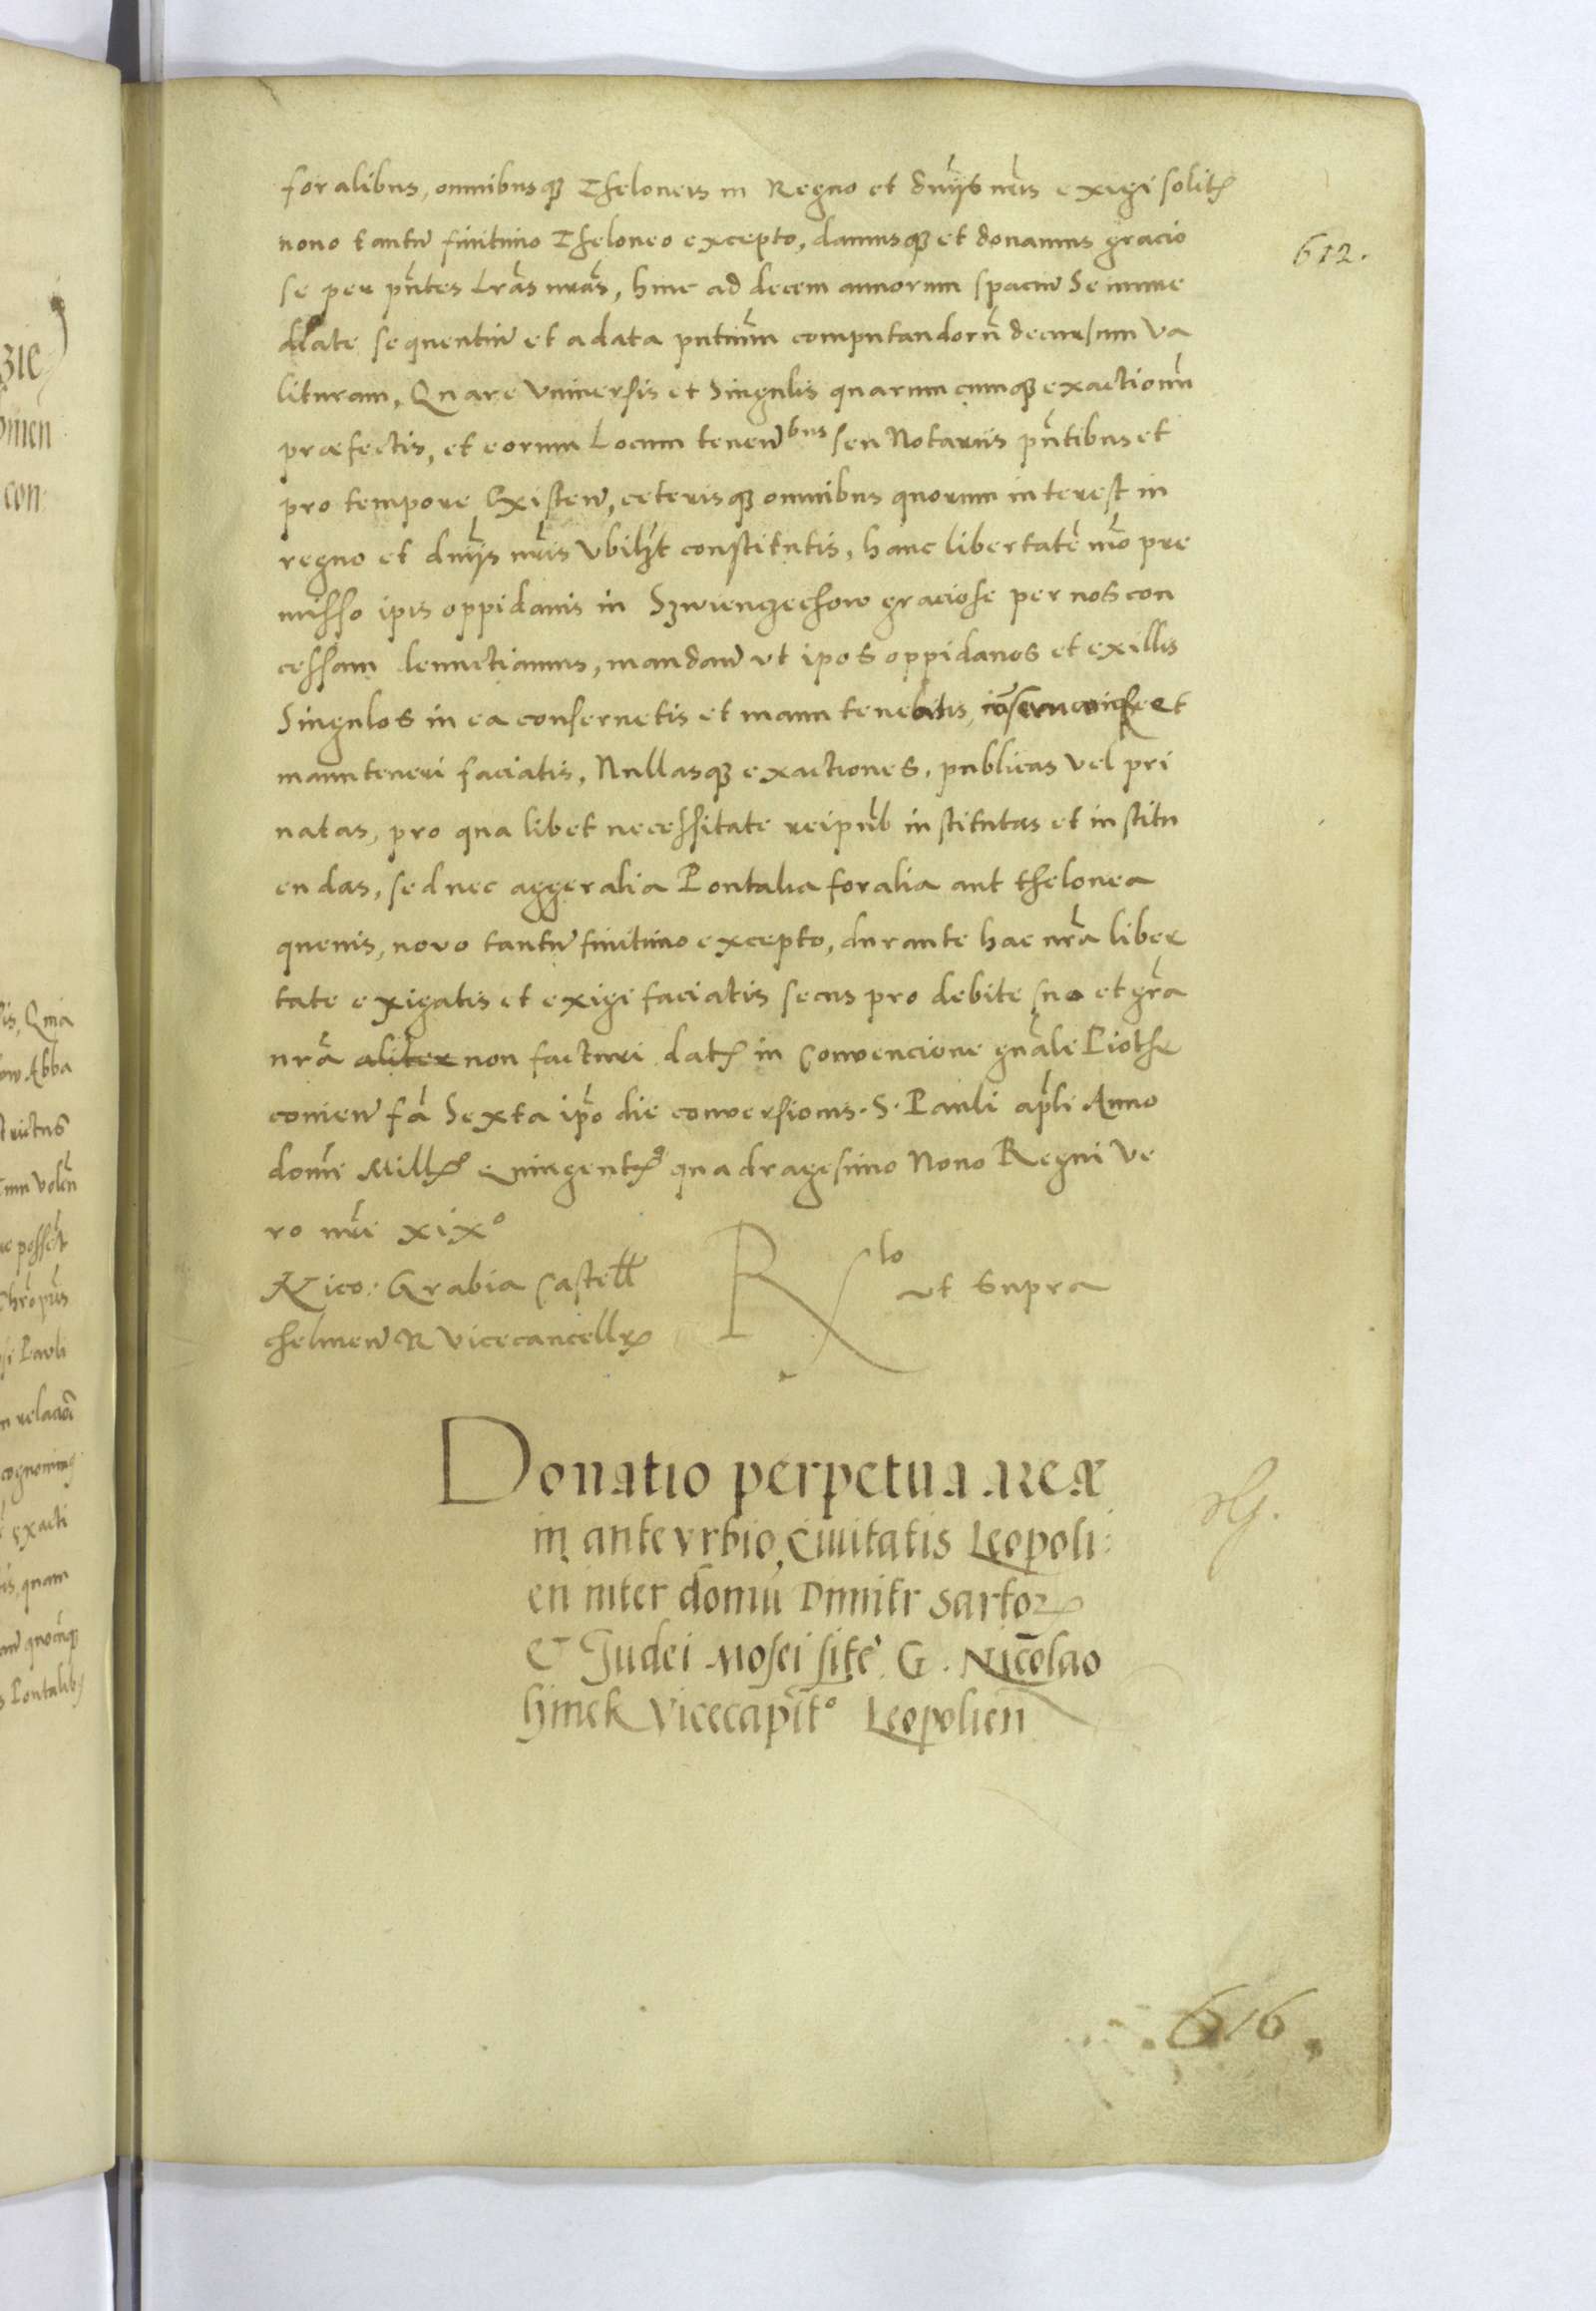 foralibus, omnibusqꝫ Theloneis in Regno et dnijs nris exigi solitꝭ
nouo tantu finitimo Theloneo excepto, damusqꝫ et donamus gracio
se per pntes lras nras, hinc ad decem annorum spaciu Se imme
diate sequentiu et a data pntium computandoru decursum va
lituram, Quare Vniuersis et Singulis quarumcumqꝫ exactionu
præfectis, et eorum Locum tenen bus seu Notariis pntibus et
pro tempore Existen, ceterisqꝫ omnibus quorum interest in
regno et dnijs nris Vbilzt constitutis, hanc libertate mo pre
misso ipis oppidanis in Szwiengechow graciose per nos con
cessam denuctiamus, mandan vt ipos oppidanos et ex illis
Singulos in ea conseruetis et manu teneatis, et
manuteneri faciatis, Nullasqꝫ exactiones, publicas vel pri
uatas, pro qua libet necessitate reipub institutas et institu
endas, sed nec aggeralia Pontalia foralia aut thelonea
queuis, novo tantu finitimo excepto, durante hac nra liber
tate exigatis et exigi faciatis secus pro debito suo et gra
nra aliter non facturi datꝭ in Convencione gnale Piotrk
comien fa Sexta ipo die conversionis S. Pauli apli Anno
domi Millꝭo Quingentꝭo quadragesimo Nono Regni Ve
ro nri xixo
Nico: Grabia Castell
chelmen R Vicecancellꝭ
Rlo vt Supra
612.
Donatio perpetua areæ
in antevrbio Ciuitatis Leopoli
en inter domu Dimitr Sartoꝝ
& Judei Mosei site G. Nicolao
hinek Vicecapito Leopolien
616